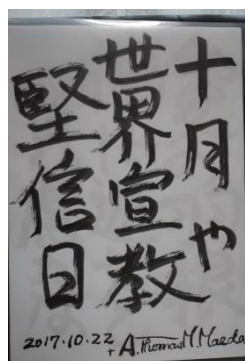 十月や
世界宣教
堅信日
2017.10.22
+ A.Thomas.M.Maeda